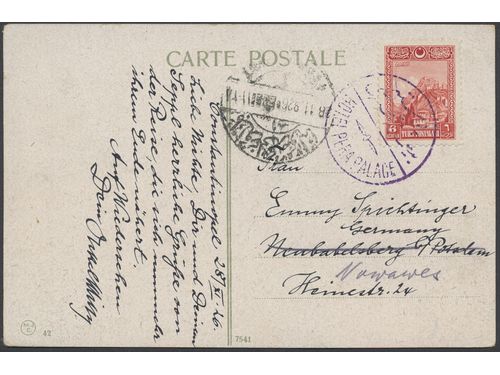 CARTE POSTALE
Constantinopel 28/II 26.
Liebe Nichte, Dir und Deinem
Seppl herzliche Grüße von
der Reise, die sich nunmehr
ihrem Ende nähert.
Auf Wiedersehen
Dein Onkel
HOTEL PERA PALACE
6
TURC POSTALARI
6
Frau
Emmy Spichtinger
Germany
Neubabelsberg b/Potsdam
Nowawes
Heinestr. 24
42
7541